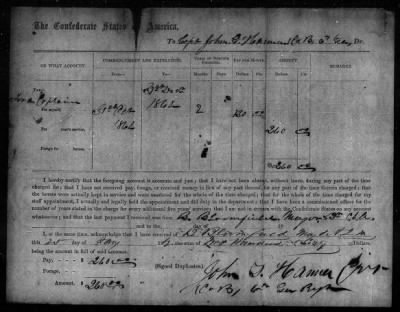 The Confederate States of America,
To Capt John T. Co B, 6th Dr.
ON WHAT ACCOUNT. COMMENCEMENT AND EXPIRATION. TERM OF SERVICE CHARGED. PAY PER MONTH. AMOUNT. REMARKS.
From— To— Months Days Dols. Cts. Dollars Cts.
Captain 1862 2 130 00
For myself,
1862 260 00
For years' service,
Forage for horses,
$260 00
I hereby certify that the foregoing account is accurate and just; that I have not been absent without leave during any part of the time
charged for; that I have not received pay, forage, or received money in lieu of any part thereof, for any part of the time therein charged; that
the horses were actually kept in service and were mustered for the whole of the time charged; that for the whole of the time charged for my
staff appointment, I actually and legally held the appointment and did duty in the department; that I have been a commissioned officer for the
number of years stated in the charge for every additional five years' service; that I am not in arrears with the Confederate States on any account
whatsoever; and that the last payment I received was from B. Bloomfield Major &
I, at the same time, acknowledge that I have received of B. Bloomfield
this day of the sum of Two Hundred & Sixty Dollars,
being the amount in full of said account.
Pay, - - $260 00
Forage, - - (Signed Duplicates.)
Amount, - $260 00
John T. Capt
Co B, 6th Regt